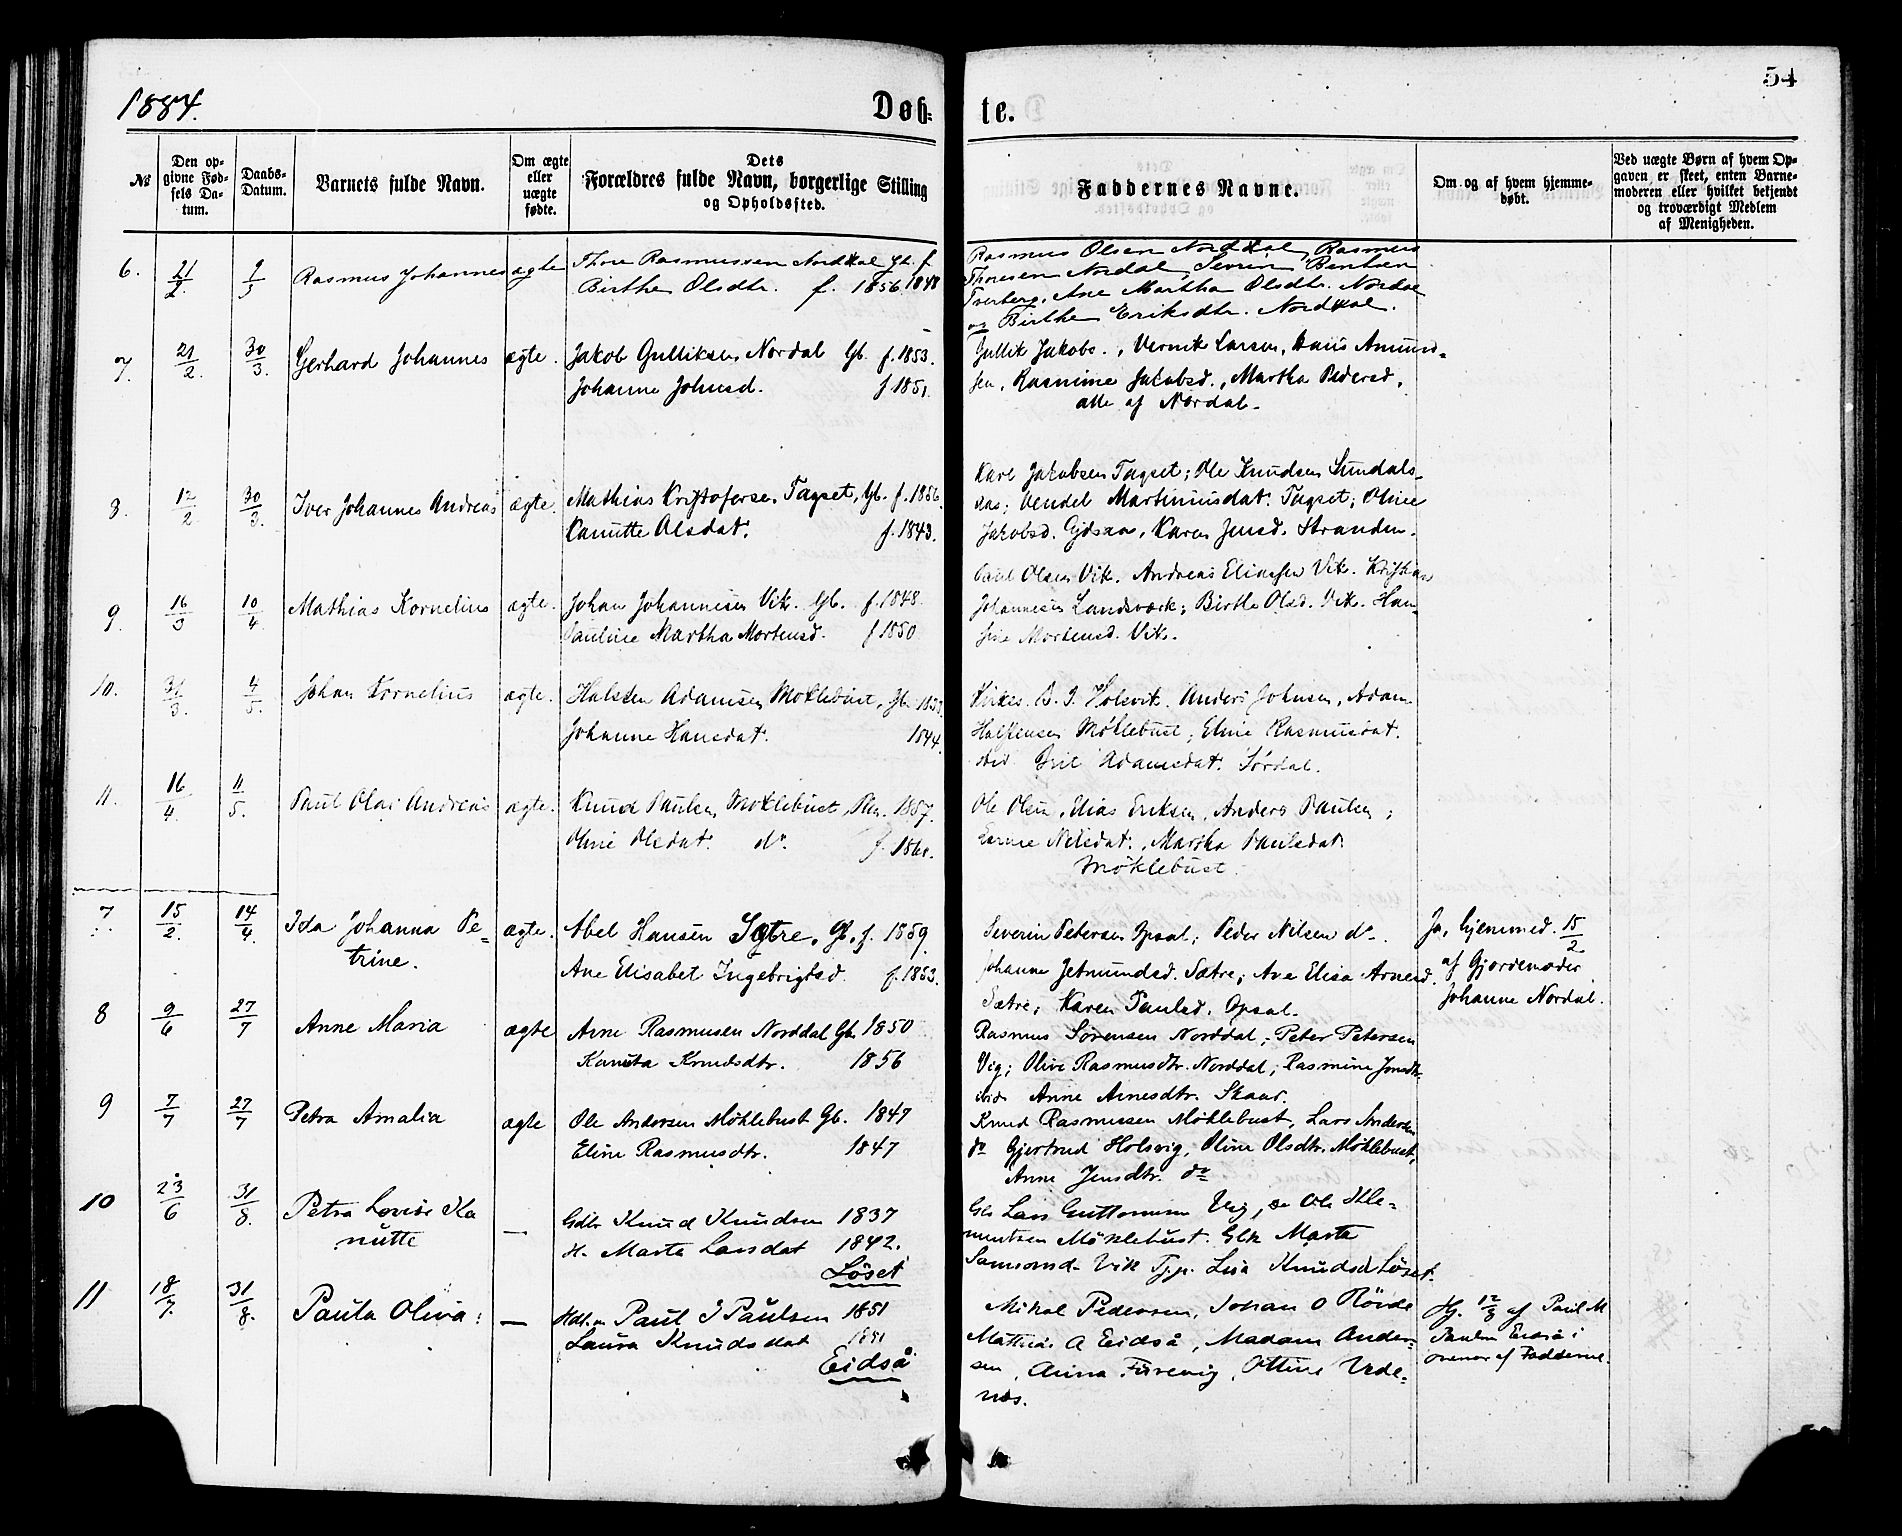 1884.
Døb-
te.
54
№
Den op-
givne Fød-
sels Da-
tum.
Daabs-
Datum.
Barnets fulde Navn.
Om ægte
eller
uægte
fødte.
Dets
Forældres fulde Navn, borgerlige Stilling
og Opholdssted.
Faddernes Navne.
Om og af hvem hjemme-
døbt.
Ved uægte Børn af hvem Op-
gaven er skeet, enten Barne-
moderen eller hvilket bekjendt
og troværdigt Medlem
af Menigheden.
6. 21/2. 9/3 Rasmus Johannes ægte Thore Rasmussen Norddal Gb. f. 1848
Birthe Olsdtr. f. 1856.
Rasmus Olsen Norddal, Rasmus
Thoresen Nordal, Severin Bentsen
Tverberg, Ane Martha Olsdtr. Nordal
og Birthe Eriksdtr. Norddal.
7. 21/2. 30/3. Gerhard Johannes ægte. Jakob Gulliksen Nordal Gb. f. 1853.
Johanne Johnsd. f 1851.
Gullik Jakobs., Vernik Larsen, Hans Amund-
sen, Rasmine Jakobsd., Martha Pedersd.,
alle af Nordal.
8. 12/2. 30/3. Iver Johannes Andreas ægte. Mathias Kristofersen Tagset, Gb. f. 1856.
Kanutte Olsdat. f. 1843.
Karl Jakobsen Tagset; Ole Knudsen Sundals-
; Vendel Martinusdat. Tagset; Oline
Jakobsd. Gjdsaa, Karen Jensd. Stranden.
9. 16/3 10/4. Mathias Kornelius ægte. Johan Johannesen Vik. Gb. f. 1848.
Pauline Martha Mortensd. f 1850
Paul Olsen Vik. Andreas Eliassen Vik. Kristian
Johannesen Landsværk; Birthe Olsd. Vik. Han-
sine Mortensd. Vik.
10. 31/3. 4/5. Johan Kornelius ægte. Halsten Adamsen Møklebust, Gb. 1853.
Johanne Hansdat. 1844.
Kirkes. B. J. Holsvik. Anders Johnsen, Adam
Halstensen Møklebust; Eline Rasmusdat.
Adamsdat. Sørdal.
11. 16/4. 11/5. Paul Olai Andreas ægte. Knud Paulsen Møklebust, 1857.
Oline Olsdat. do.
Ole Olsen, Elias Eriksen, Anders Paulsen;
Nilsdat., Martha Paulsdat.
Møklebust.
7 15/2. 14/4. Ida Johanna Pe-
trine. ægte. Abel Hansen Sætre, Gb. f. 1859.
Ane Elisabet Ingebrigtsd. f. 1853.
Severin Petersen Opsal; Peder Nilsen do.
Johanne Jetmundsd. Sætre; Ane Elisa Arnesd.
Sætre; Karen Paulsd. Opsal.
Ja, hjemmed. 15/2
af Gjordemoder
Johanne Nordal.
8 9/6 27/7 Anne Maria ægte Arne Rasmusen Norddal Gb. 1850
Kanuta Knudsdtr. 1856
Rasmus Sørensen Norddal; Peter Petersen
Vig; Olive Rasmusdtr. Norddal; Rasmine Jonsdtr.
ibid Anne Arnesdtr. Skaar.
9 7/7 27/7 Petra Amalia ægte Ole Andersen Møklebust Gb. 1847
Eline Rasmusdtr. 1847
Knud Rasmussen Møklebust, Lars Andersen
do Gjertrud Holsvig, Oline Olsdtr. Møklebust,
Anne Jensdtr. do
10 23/6 31/8. Petra Lovise Ka
nutte — Gdbr Knud Knudsen 1837
H. Marte Larsdat 1842.
Löset
Gb Lars Guttormsen Vig, Ole Kle-
mentsen Møklebust. Gbk Marte
Samsonsd Vik Tj.p. Lisa Knudsd Löset.
11 18/7. 31/8. Paula Oliva: — Hdl.m Paul I Paulsen 1851
Laura Knudsdat 1851
Eidså
Mikal Pedersen, Johan O Rövde
Mathias A Eidså, Madam Ander-
sen, Anna Furevig, Ottine Vede-
nes.
Hj. 12/8 af Paul M
Paulsen Eidså i
overvær af Fadderne.